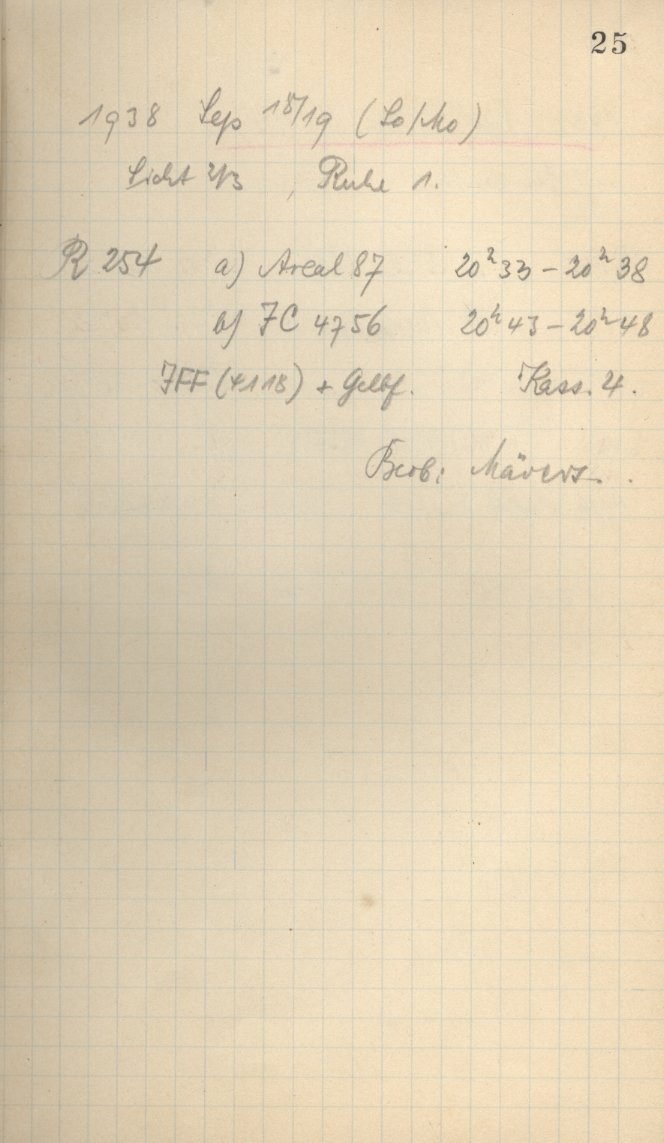 25
1938 Sep 18/19 (So/Mo)
Licht 2/3, Ruhe 1.
R 254 a) Areal 87 20h33 – 20h38
b) JC 4756 20h43 – 20h48
JFF (4118) + Gelbf. Kass. 4.
Beob: